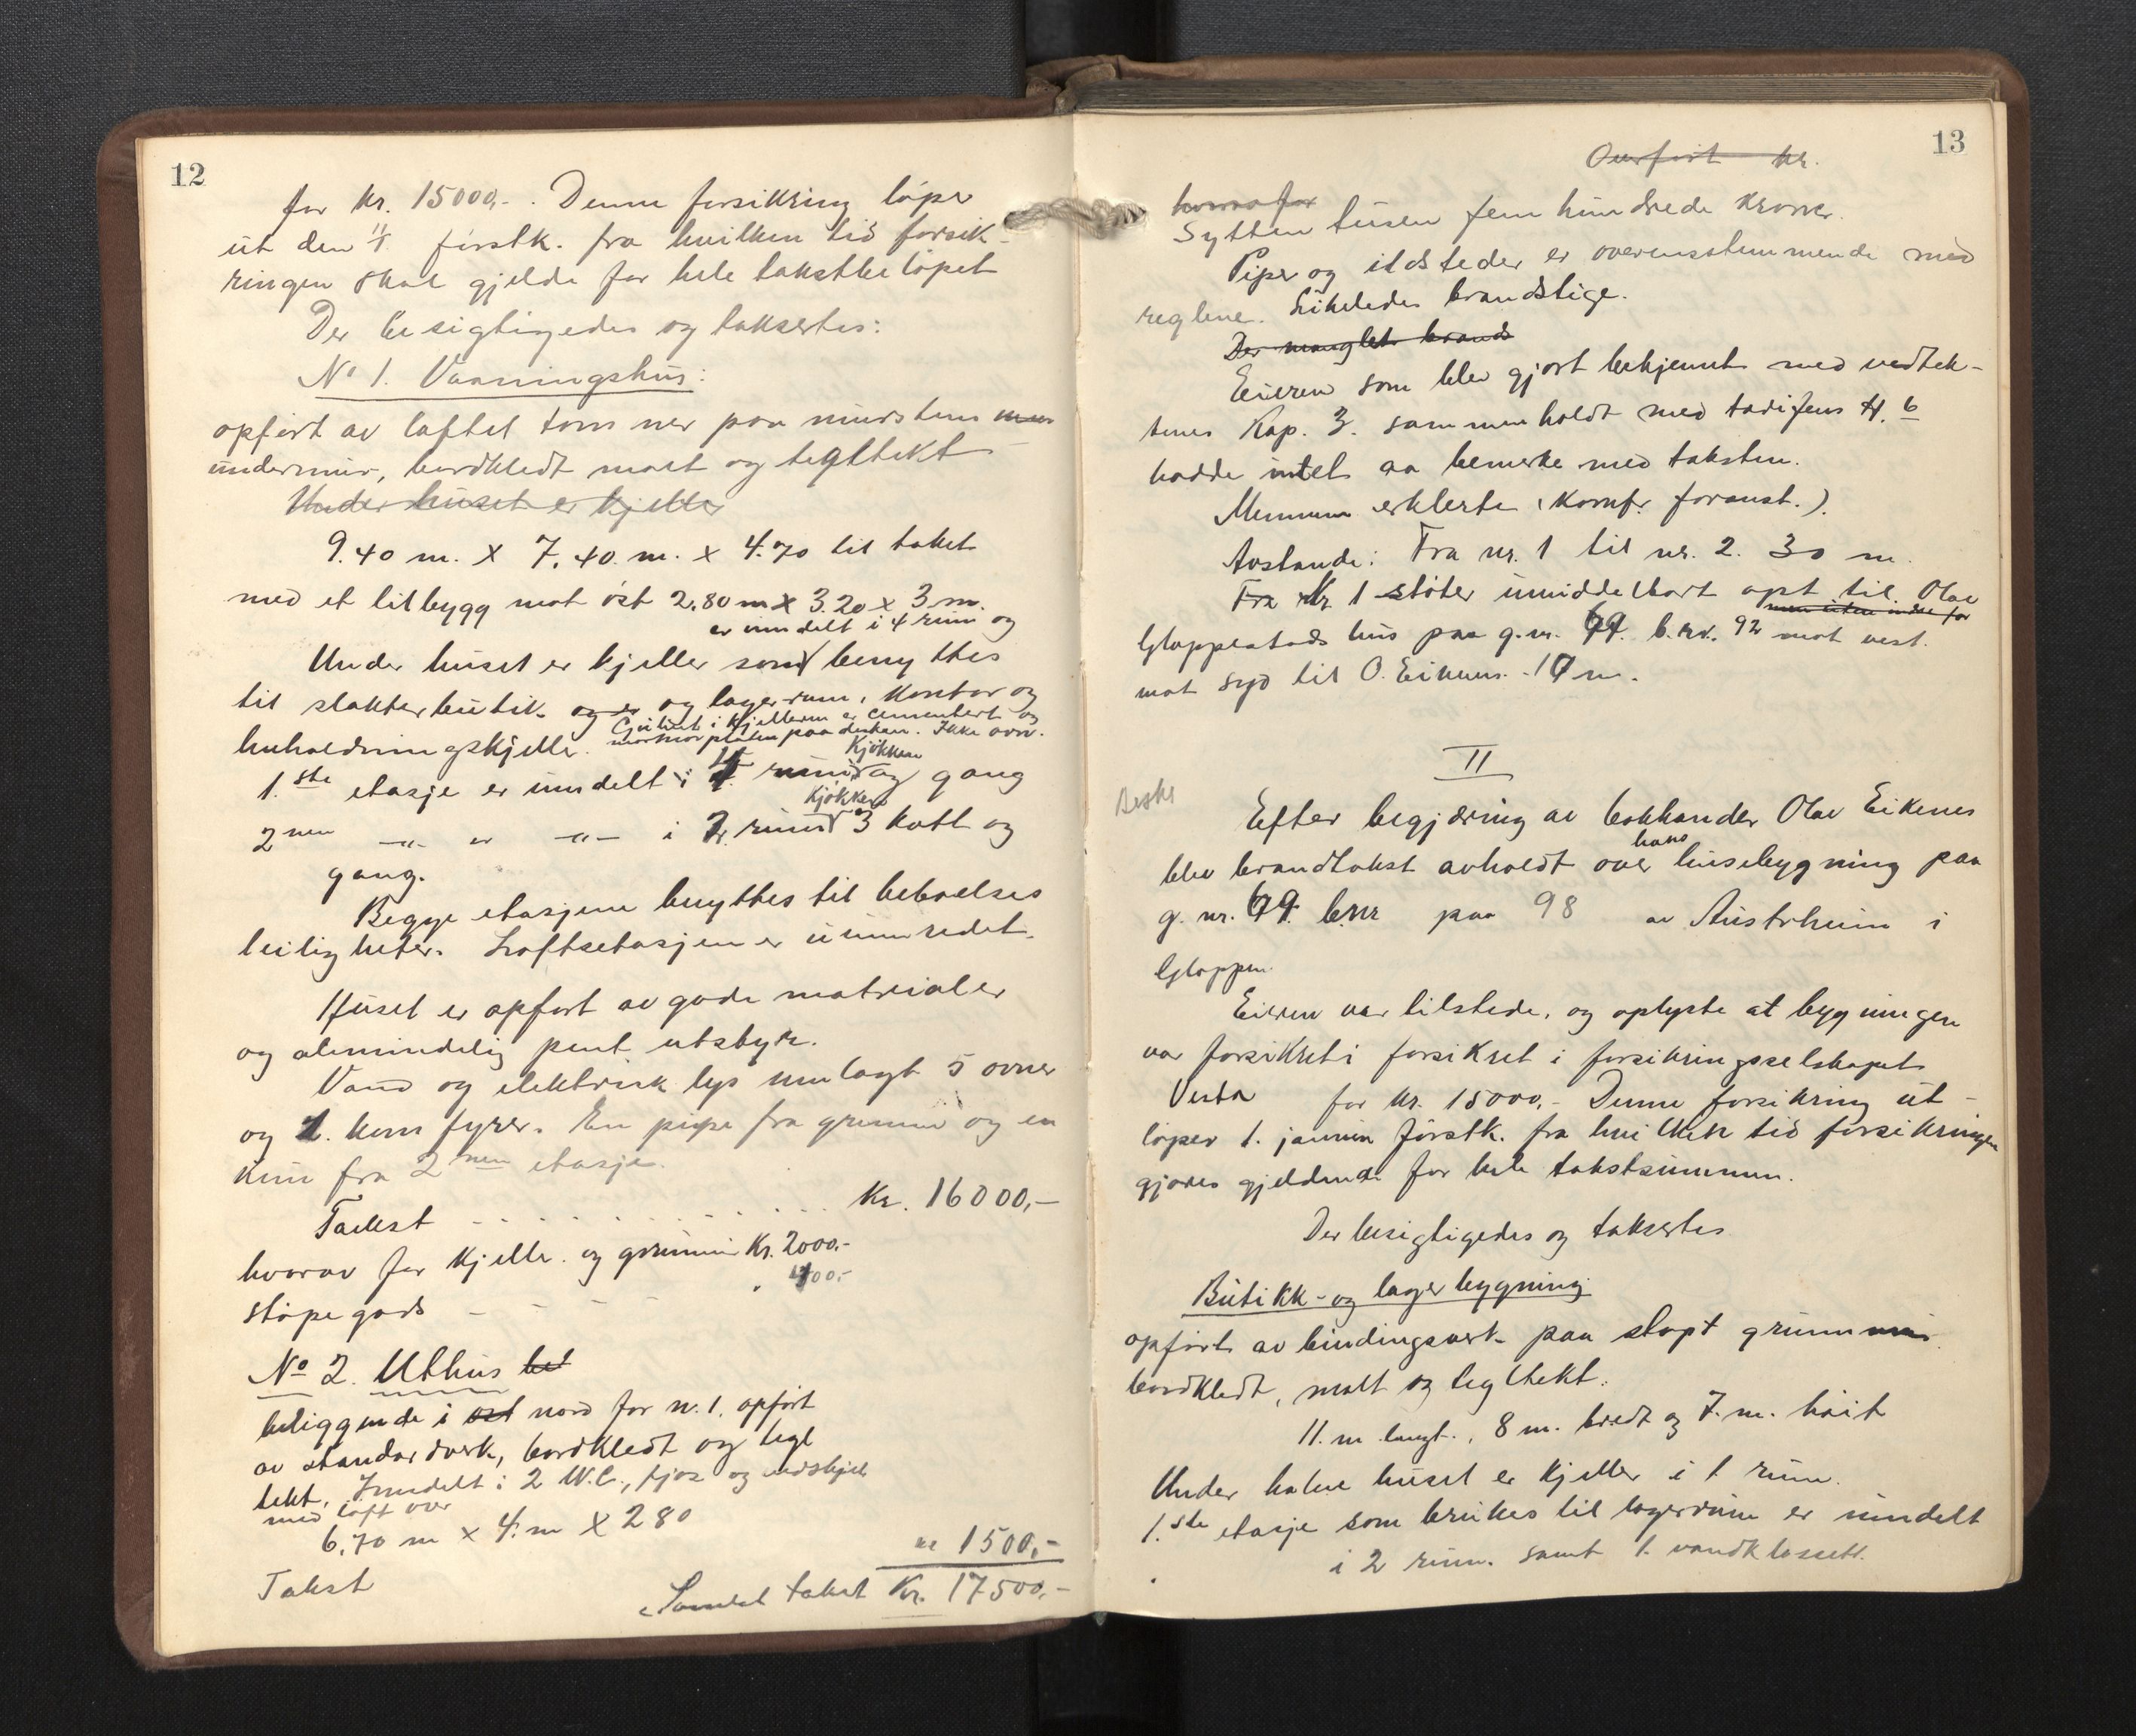 12
for Kr. 15000,-. Denne forsikring løper
ut den 1/1 førstk. fra hvilken tid forsik-
ringen skal gjelde for hele takstbeløpet
Der besigtigedes og taksertes:
No 1. Vaaningshus:
opført av laftet tømmer paa murstens
undermur, bordkledt malt og tegltekt
Under huset er kjeller
9.40 m. x 7.40 m. x 4.70 til taket
med et tilbygg mot øst 2.80 m x 3.20 x 3 m.
er inndelt i 4 rum og
Under huset er kjeller som benyttes
til slakterbutik og er og lagerrum, kontor og
Gulvet i kjelleren er cementert og
huholdningskjeller. marmorplaten paa disken. Ikke ovn.
Kjøkken
1.ste etasje er inndelt i 4 rum og gang
Kjøkken
2nen -"- er -"- i 2 rum 3 kott og
gang.
Begge etasjene benyttes til beboelses
leiligheter. Loftsetasjen er uinnredet.
Huset er opført av gode materialer
og alemindelig pent utstyr.
Vand og elektrisk lys innlagt 5 ovner
og 2. komfyrer. En pipe fra grunnen og en
kun fra 2nen etasje.
Takst . . . . . . . . . . Kr. 16000,-
hvorav for kjeller og grunnmur Kr. 2000.-
støpegods - - - - " 400.-
No 2. Uthus bel
beliggende i øst nord for nr. 1. opført
av standardverk, bordkledt og tegl
tekt. Inndelt i 2 W.C., fjøs og vedskjul
med loft over
6.70 m x 4. m x 280
Takst kr 1500,-
Samlet takst Kr. 17500,-
13
Overført kr.
hvorav for
Sytten tusen fem hundrede kroner.
Piper og ildsteder er overensstemmende med
reglene. Likeledes brandstige.
Der manglet brands
Eieren som blev gjort bekjennt med vedtek-
tenes Kap. 3. sammenholdt med tarifens H. 6
hadde intet aa bemerke med taksten.
Mennene erklerte (komfr. foranst.).
Avstande: Fra nr. 1 til nr. 2. 30 m.
Fra Nr 1 støter umiddelbart opt til Olav
Gloppestads hus paa g.nr. 69. b.nr. 92 mot vest.
mot syd til O. Eikenes. 10 m.
II
Efter begjæring av bokhandler Olav Eikenes
hans
blev brandtakst avholdt over husebygning paa
g. nr. 69. bnr paa 98 av Austrheim i
Gloppen.
Eieren var tilstede, og oplyste at bygningen
var forsikret i forsikret i forsikringsselskapet
Vesta for kr. 15000,- Denne forsikring ut-
løper 1. januar førstk. fra hvilken tid forsikringen
gjøres gjeldende for hele takstsummen.
Der besigtigedes og taksertes
Butikk- og lagerbygning
opført av bindingsverk paa støpt grunnmur
bordkledt, malt og tegltekt.
11. m langt., 8 m. bredt og 7. m. høit
Under halve huset er kjeller i 1 rum.
1.ste etasje som brukes til lagerrum er inndelt
i 2 rum. samt 1. vandklossett.